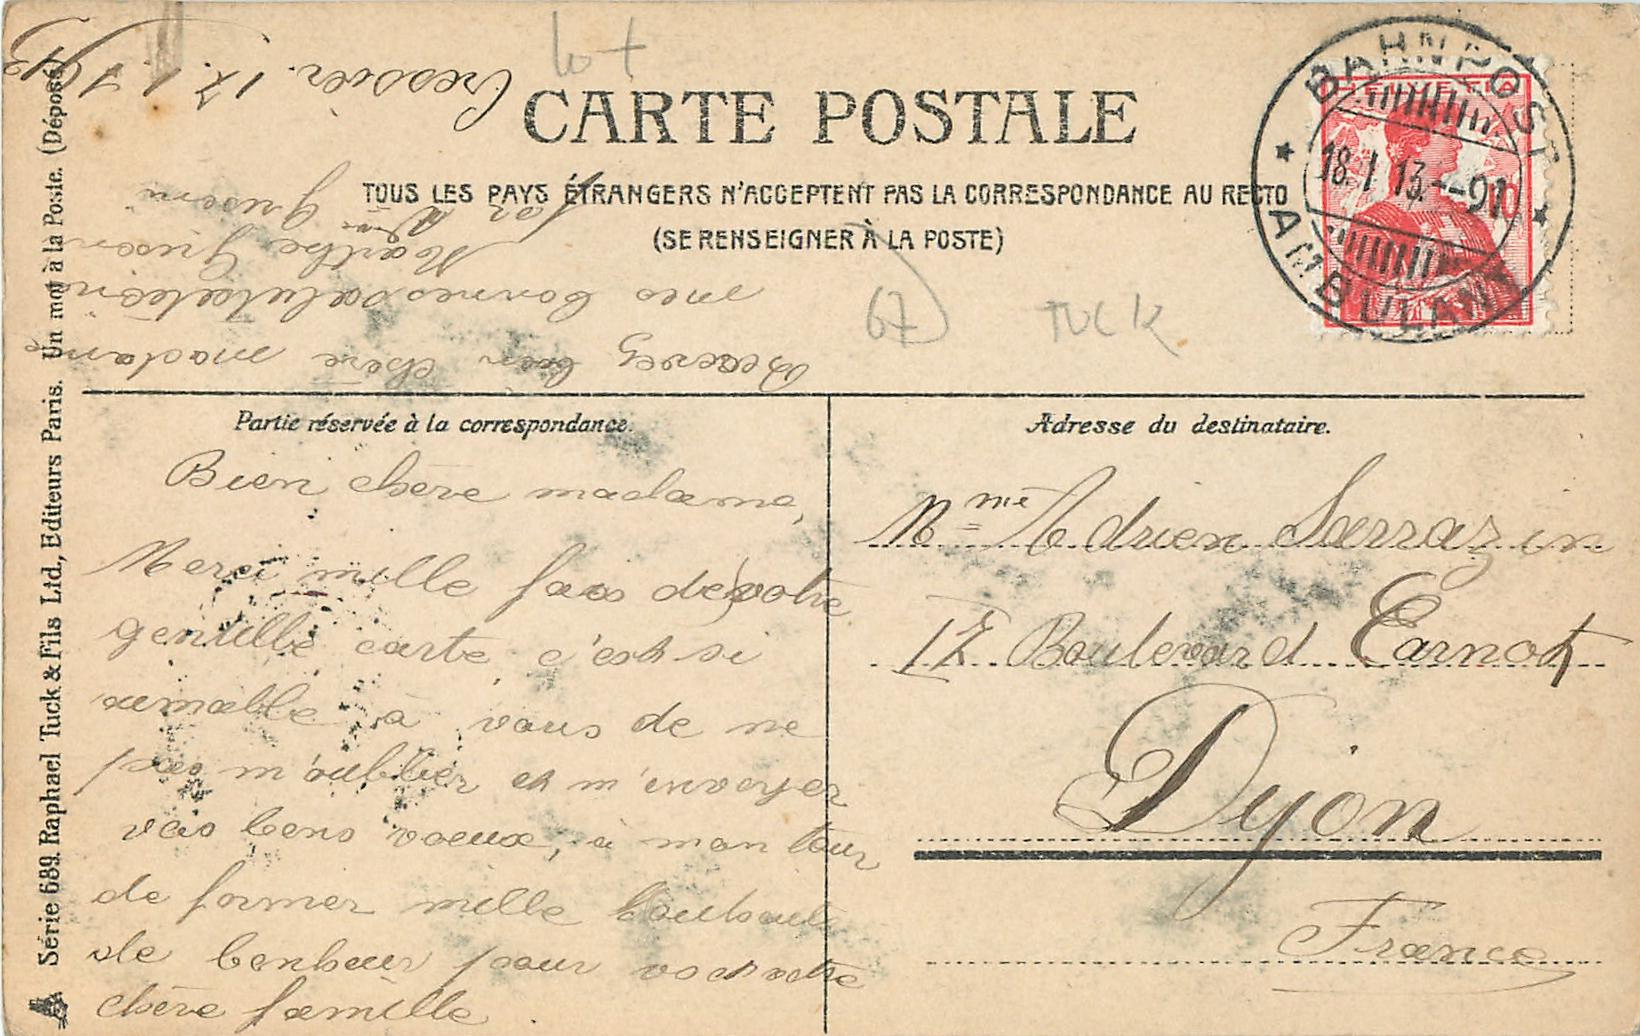 Cressier. 17.1.1913
lot
CARTE POSTALE
TOUS LES PAYS ÉTRANGERS N'ACCEPTENT PAS LA CORRESPONDANCE AU RECTO
(SE RENSEIGNER À LA POSTE)
67
TUCK
HELVETIA
10
BAHNPOST
18.I 13.--91
AMBULANT
Partie réservée à la correspondance.
Bien chère madame,
Merci mille fois de votre
gentille carte c'est si
aimable à vous de ne
pas m'oublier et m'envoyer
vos bons voeux, à mon tour
de former mille souhaits
de bonheur pour vous et votre
chère famille
Recevez bien chère madame
mes bonnes salutations
Marthe
par Mme
Adresse du destinataire.
Mme Adrien Sarrazin
17 Boulevard Carnot
Dijon
France
Série 689. Raphael Tuck & Fils Ltd., Editeurs Paris. Un mot à la Poste. (Déposé)